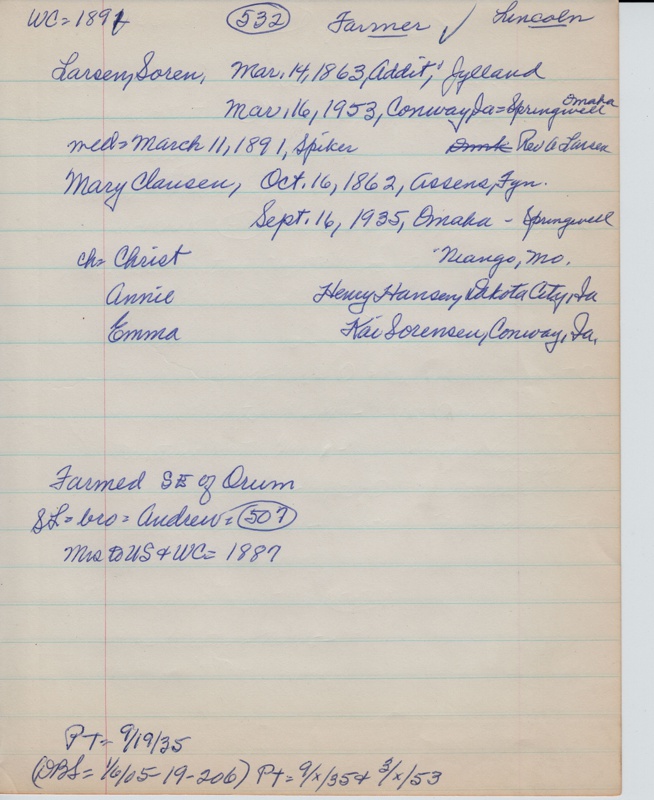 WC = 1891 532 Farmer ✓ Lincoln
Larsen, Soren, Mar. 14, 1863, Addit, Jylland
Omaha
Mar. 16, 1953, Conway, Ia = Springwell
med = March 11, 1891, Spiker Rev A Larsen
Mary Clausen, Oct. 16, 1862, Assens, Fyn.
Sept. 16, 1935, Omaha - Springwell
ch = Christ Neango, Mo.
Annie Henry Hansen, Dakota City, Ia
Emma Kai Sorensen, Conway, Ia.
Farmed SE of Orum
SL = bro = Andrew = 507
Mrs to US & WC = 1887
PT = 9/19/35
(DBS = 1/6/05-19-206) PT = 9/x/35 & 3/x/53